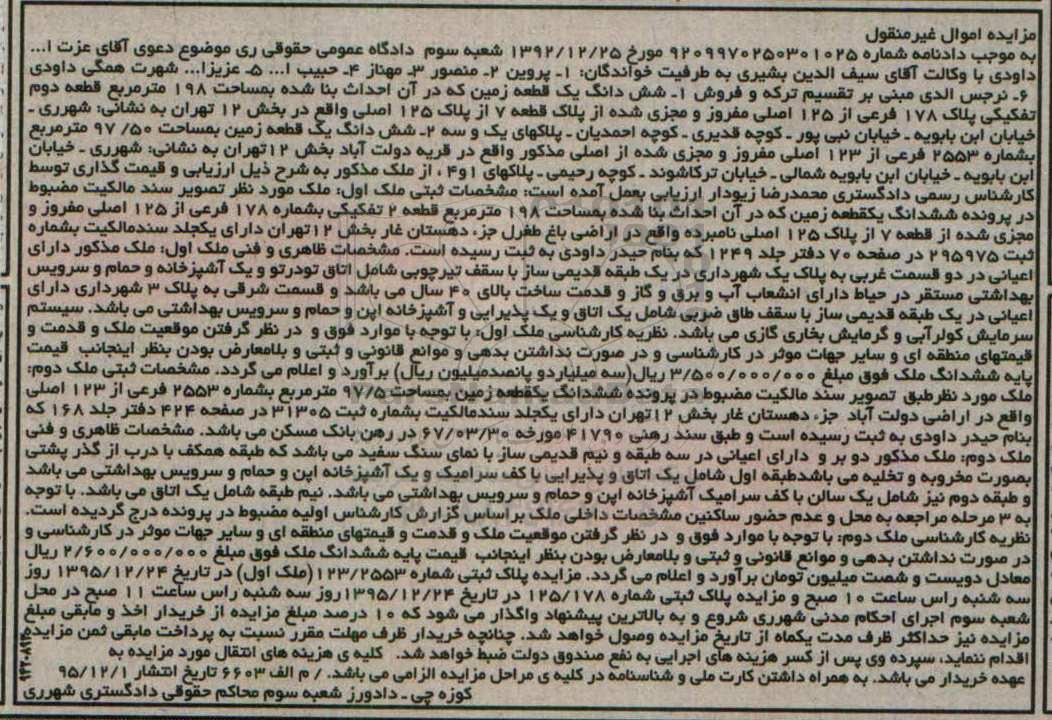 مزایده اموال غیرمنقول
به موجب دادنامه شماره ۹۲۰۹۹۷۰۲۵۰۳۰۱۰۲۵ مورخ ۱۳۹۲/۱۲/۲۵ شعبه سوم دادگاه عمومی حقوقی ری موضوع دعوی آقای عزت ا...
داودی با وکالت آقای سیف الدین بشیری به طرفیت خواندگان: ۱ـ پروین ۲ـ منصور ۳ـ مهناز ۴ـ حبیب ا... ۵ـ عزیزا... شهرت همگی داودی
۶ـ نرجس الدی مبنی بر تقسیم ترکه و فروش ۱ـ شش دانگ یک قطعه زمین که در آن احداث بنا شده بمساحت ۱۹۸ مترمربع قطعه دوم
تفکیکی پلاک ۱۷۸ فرعی از ۱۲۵ اصلی مفروز و مجزی شده از پلاک قطعه ۷ از پلاک ۱۲۵ اصلی واقع در بخش ۱۲ تهران به نشانی: شهرری ـ
خیابان ابن بابویه ـ خیابان نبی پور ـ کوچه قدیری ـ کوچه احمدیان ـ پلاکهای یک و سه ۲ـ شش دانگ یک قطعه زمین بمساحت ۹۷/۵۰ مترمربع
بشماره ۲۵۵۳ فرعی از ۱۲۳ اصلی مفروز و مجزی شده از اصلی مذکور واقع در قریه دولت آباد بخش ۱۲تهران به نشانی: شهرری ـ خیابان
ابن بابویه ـ خیابان ابن بابویه شمالی ـ خیابان ترکاشوند ـ کوچه رحیمی ـ پلاکهای ۱و۴ ، از ملک مذکور به شرح ذیل ارزیابی و قیمت گذاری توسط
کارشناس رسمی دادگستری محمدرضا زیودار ارزیابی بعمل آمده است: مشخصات ثبتی ملک اول: ملک مورد نظر تصویر سند مالکیت مضبوط
در پرونده ششدانگ یکقطعه زمین که در آن احداث بنا شده بمساحت ۱۹۸ مترمربع قطعه ۲ تفکیکی بشماره ۱۷۸ فرعی از ۱۲۵ اصلی مفروز و
مجزی شده از قطعه ۷ از پلاک ۱۲۵ اصلی نامبرده واقع در اراضی باغ طغرل جز، دهستان غار بخش ۱۲تهران دارای یکجلد سندمالکیت بشماره
ثبت ۲۹۵۹۷۵ در صفحه ۷۰ دفتر جلد ۱۲۴۹ که بنام حیدر داودی به ثبت رسیده است. مشخصات ظاهری و فنی ملک اول: ملک مذکور دارای
اعیانی در دو قسمت غربی به پلاک یک شهرداری در یک طبقه قدیمی ساز با سقف تیرچوبی شامل اتاق تودرتو و یک آشپزخانه و حمام و سرویس
بهداشتی مستقر در حیاط دارای انشعاب آب و برق و گاز و قدمت ساخت بالای ۴۰ سال می باشد و قسمت شرقی به پلاک ۳ شهرداری دارای
اعیانی در یک طبقه قدیمی ساز با سقف طاق ضربی شامل یک اتاق و یک پذیرایی و آشپزخانه اپن و حمام و سرویس بهداشتی می باشد. سیستم
سرمایش کولرآبی و گرمایش بخاری گازی می باشد. نظریه کارشناسی ملک اول: با توجه با موارد فوق و در نظر گرفتن موقعیت ملک و قدمت و
قیمتهای منطقه ای و سایر جهات موثر در کارشناسی و در صورت نداشتن بدهی و موانع قانونی و ثبتی و بلامعارض بودن بنظر اینجانب قیمت
پایه ششدانگ ملک فوق مبلغ ۳/۵۰۰/۰۰۰/۰۰۰ ریال(سه میلیاردو پانصدمیلیون ریال) برآورد و اعلام می گردد. مشخصات ثبتی ملک دوم:
ملک مورد نظرطبق تصویر سند مالکیت مضبوط در پرونده ششدانگ یکقطعه زمین بمساحت ۹۷/۵ مترمربع بشماره ۲۵۵۳ فرعی از ۱۲۳ اصلی
واقع در اراضی دولت آباد جز، دهستان غار بخش ۱۲تهران دارای یکجلد سندمالکیت بشماره ثبت ۳۱۳۰۵ در صفحه ۴۲۴ دفتر جلد ۱۶۸ که
بنام حیدر داودی به ثبت رسیده است و طبق سند رهنی ۴۱۷۹۰ مورخه ۶۷/۰۳/۳۰ در رهن بانک مسکن می باشد. مشخصات ظاهری و فنی
ملک دوم: ملک مذکور دو بر و دارای اعیانی در سه طبقه و نیم قدیمی ساز با نمای سنگ سفید می باشد که طبقه همکف با درب از گذر پشتی
بصورت مخروبه و تخلیه می باشدطبقه اول شامل یک اتاق و پذیرایی با کف سرامیک و یک آشپزخانه اپن و حمام و سرویس بهداشتی می باشد
و طبقه دوم نیز شامل یک سالن با کف سرامیک آشپزخانه اپن و حمام و سرویس بهداشتی می باشد. نیم طبقه شامل یک اتاق می باشد. با توجه
به ۳ مرحله مراجعه به محل و عدم حضور ساکنین مشخصات داخلی ملک براساس گزارش کارشناس اولیه مضبوط در پرونده درج گردیده است.
نظریه کارشناسی ملک دوم: با توجه با موارد فوق و در نظر گرفتن موقعیت ملک و قدمت و قیمتهای منطقه ای و سایر جهات موثر در کارشناسی و
در صورت نداشتن بدهی و موانع قانونی و ثبتی و بلامعارض بودن بنظر اینجانب قیمت پایه ششدانگ ملک فوق مبلغ ۲/۶۰۰/۰۰۰/۰۰۰ ریال
معادل دویست و شصت میلیون تومان برآورد و اعلام می گردد. مزایده پلاک ثبتی شماره ۱۲۳/۲۵۵۳(ملک اول) در تاریخ ۱۳۹۵/۱۲/۲۴ روز
سه شنبه راس ساعت ۱۰ صبح و مزایده پلاک ثبتی شماره ۱۲۵/۱۷۸ در تاریخ ۱۳۹۵/۱۲/۲۴روز سه شنبه راس ساعت ۱۱ صبح در محل
شعبه سوم اجرای احکام مدنی شهرری شروع و به بالاترین پیشنهاد واگذار می شود که ۱۰ درصد مبلغ مزایده از خریدار اخذ و مابقی مبلغ
مزایده نیز حداکثر ظرف مدت یکماه از تاریخ مزایده وصول خواهد شد. چنانچه خریدار ظرف مهلت مقرر نسبت به پرداخت مابقی ثمن مزایده
اقدام ننماید، سپرده وی پس از کسر هزینه های اجرایی به نفع صندوق دولت ضبط خواهد شد. کلیه ی هزینه های انتقال مورد مزایده به
عهده خریدار می باشد. به همراه داشتن کارت ملی و شناسنامه در کلیه ی مراحل مزایده الزامی می باشد. / م الف ۶۶۰۳ تاریخ انتشار ۹۵/۱۲/۱
کوزه چی ـ دادورز شعبه سوم محاکم حقوقی دادگستری شهرری